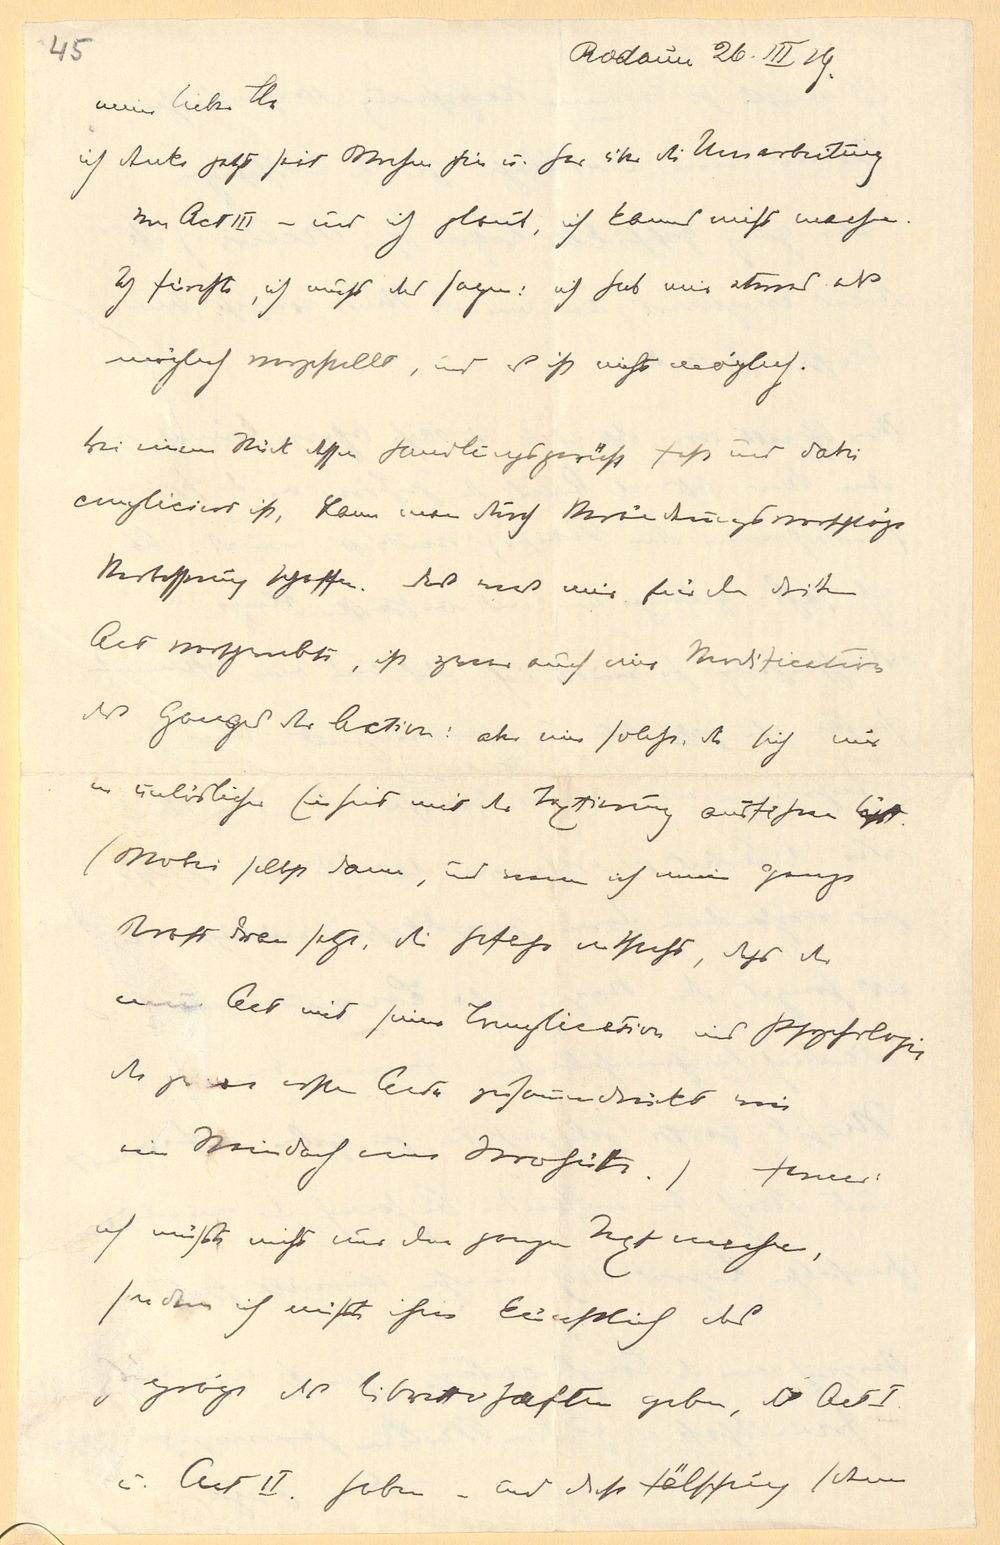 45
Rodaun 26. III 19.
mein lieber Ur
ich denke jetzt seit Wochen hin u. her über die Umarbeitung
von Act III – und ich glaub, ich kanns nicht machen.
Ich fürchte, ich muss das sagen: ich hab mir etwas als
möglich vorgestellt, und es ist nicht möglich.
Bei einem Stück dessen Handlungsgerüst fest und dabei
compliciert ist, kann man durch Veränderungsvorschläge
Verbesserung schaffen. Das was mir für den dritten
Act vorschwebte, ist zwar auch eine Modification
des Ganges der Action: aber eine solche, die sich nur
in unlöslicher Einheit mit der Textierung ausführen lässt.
(Wobei selbst dann, und wenn ich meine ganze
Kraft dran setze, die Gefahr entsteht, dass der
neue Act mit seiner Complication und Psychologie
die zwei ersten Acte zusammendrückt wie
ein Steindach eine Strohhütte.) Ferner:
ich müsste nicht nur den ganzen Text machen,
sondern ich müsste ihm künstlich das
Gepräge des Librettohaften geben, das Act I
u. Act II. haben – und diese Fälschung